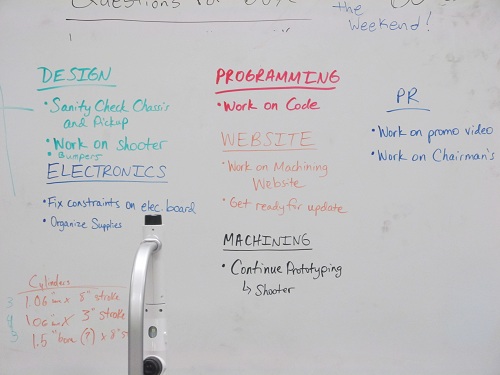 Questions for
the
Weekend!
DESIGN
• Sanity Check Chassis
and Pickup
• Work on shooter
• Bumpers
ELECTRONICS
• Fix constraints on elec. board
• Organize Supplies
Cylinders
1.06 in x 8" stroke
1.06 in x 3" stroke
1.5" bore (?) x 8" s
PROGRAMMING
• Work on Code
WEBSITE
• Work on Machining
Website
• Get ready for update
MACHINING
• Continue Prototyping
↳ Shooter
PR
• Work on promo video
• Work on Chairman's